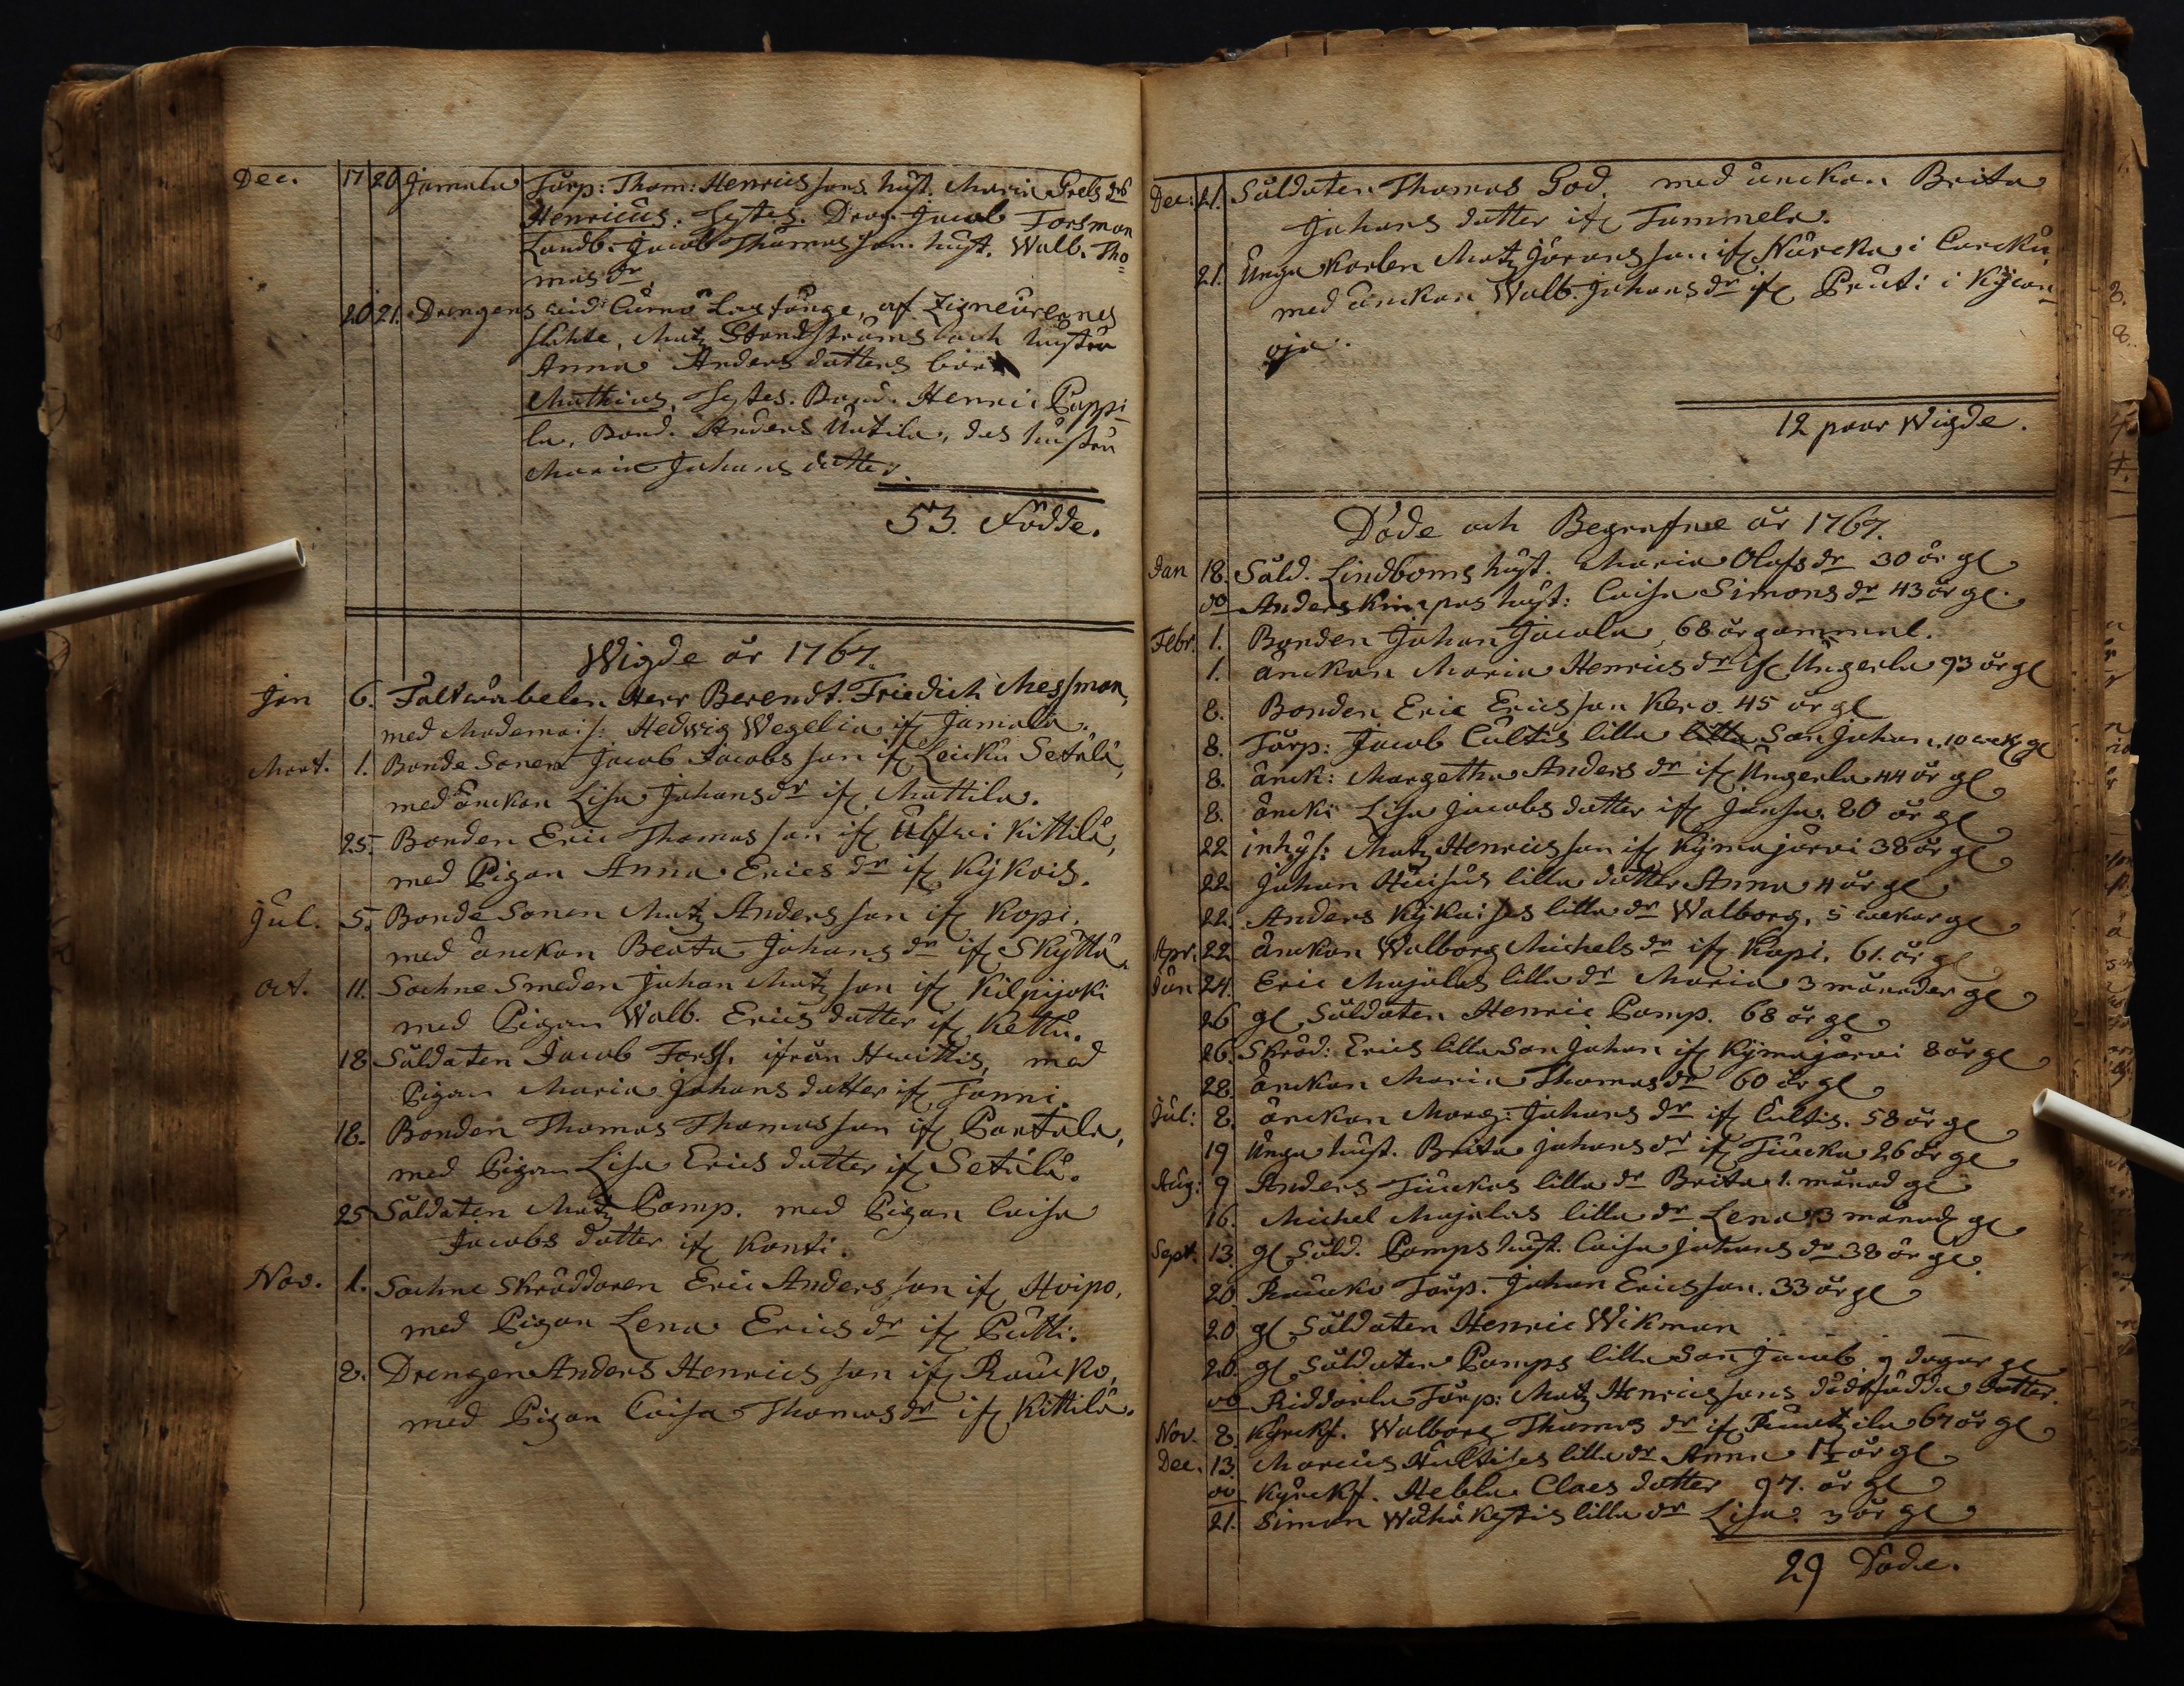 Dec. 17 20 Jamala Torp: Thom: Henricssons hust. Maria Grelsdr
Henricus. Testes. Drag. Jacob Forsman
Landb. Jacob Thomasson. hust. Walb. Tho=
mas dr.
20 21. Drengens wid Lurno Lag af Zigneurernes
Matz Strandströms och hustru
Anna Anders datters barn
Mathias. Testes. Bond. Henric Pappi-
la, Bond. Anders Untila, des hustru
Maria Johans datter.
53. Födde.
Wigde år 1767.
Jan 6. Fältwäbelen Herr Berendt Friedich Messman,
med Mademois: Hedwig Wegelia if Jamala.
Mart. 1. Bonde Sonen Jacob Jacobsson if Leicku Setälä,
med änckan Lisa Johansdr if Mattila.
25. Bonden Eric Thomasson if Kittilä,
med Pigan Anna Erics dr if Kykois.
Jul. 5. Bonde Sonen Matz Andersson if Kopi.
med änckan Beata Johans dr if Skyttä.
Oct. 11. Sochne Smeden Johan Matzson if Kilpijoki
med Pigan Walb. Erics datter if Kettu.
18 Såldaten Jacob Forss, ifrån Hwittis, med
Pigan Maria Johans datter if Tonni.
18. Bonden Thomas Thomasson if Partala,
med Pigan Lisa Erics datter if Setälä.
25 Såldaten Matz Pamp. med Pigan Caisa
Jacobs datter if Konti.
Nov. 1. Sochne Skräddaren Eric Andersson if Hoipo,
med Pigan Lena Erics dr if Putti.
8. Drengen Anders Henricsson if Raucko,
med Pigan Caisa Thomasdr if Kittilä.
Dec: 21. Såldaten Thomas God. med änckan Brita
Johans datter if Tammela.
21. Unga Karlen Matz Jöransson if Närcka i Carcku,
med änckan Walb. Johansdr if Prusi i Kÿlan-
oja.
12 paar Wigde.
Döde och Begrafne år 1767.
Jan 18. Såld. Lindboms hust. Maria Olofsdr 30 år gl
do Anders Kimpas hust: Caisa Simonsdr 43 år gl.
Febr. 1. Bonden Johan Jacola, 68 år gammal.
1. änckan Maria Henricsdr if Ungerla 93 år gl
8. Bonden Eric Ericsson Kero 45 år gl
8. Torp: Jacob Cultis lilla lilla Son Johan. 10 wek gl
8. änck: Margetha Andersdr if Ungerla 44 år gl
8. änck: Lisa Jacobs datter if Jansa. 80 år gl
22 inhys: Matz Henricsson if Kymajärvi 38 år gl
22. Johan Huisus lilla dotter Anna 4 år gl
22. Anders Kykoises lilla dr Walborg, 5 wekor gl
Apr. 22 Änckan Walborg Michelsdr if Kopi. 61. år gl
Jun 24. Eric Majalas lilla dr Maria 3 månader gl
26 gl Såldaten Henric Pamp. 68 år gl
26. Skräd: Erics lilla Son Johan if Kymajärvi 8 år gl
28. änckan Maria Thomasdr 60 år gl
Jul: 8. änckan Marg: Johans dr if Cultis. 58 år gl
19 Unga hust. Brita Johansdr if Tiucka 26 år gl
Aug: 9 Anders Tiuckas lilla dr Brita 1. månad gl
16. Michel Majalas lilla dr Lena 3 månad gl
Sept. 13. gl Såld. Pamps hust. Caisa Johans dr 38 år gl.
20 Raucko Torp. Johan Ericsson. 33 år gl
20 gl Såldaten Henric Wikman
20. gl Såldaten Pamps lilla Son Jacob 9 dagar gl
do Riddarla Torp: Matz Henricssons dödfödda Dotter.
Nov. 8. Kyrckf. Walborg Thomas dr if 67 år gl
Dec. 13. Marcus Hultises lilla dr Anna 1½ år gl
do Kyrckf. Hebla Claes datter 97. år gl
21. Simon Wähäkystis lilla dr Lisa. 3 år gl
29 Döde.